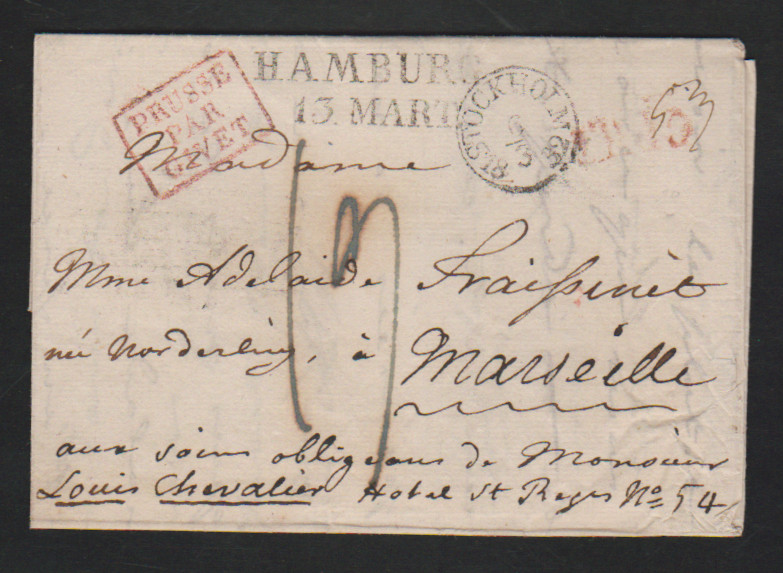 PRUSSE
PAR
GIVET
HAMBURG
13. MART
STOCKHOLM
6/3
1832
Madame
19
Mme Adelaide Fraissinet
née Norderling, à
Marseille
aux soins obligeans de Monsieur
Louis Chevalier Hotel St Regis No 54